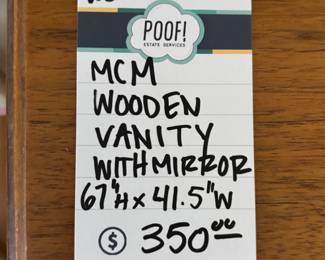 POOF!
ESTATE SERVICES
MCM
WOODEN
VANITY
WITH MIRROR
67"H x 41.5"W
$ 350⁰⁰